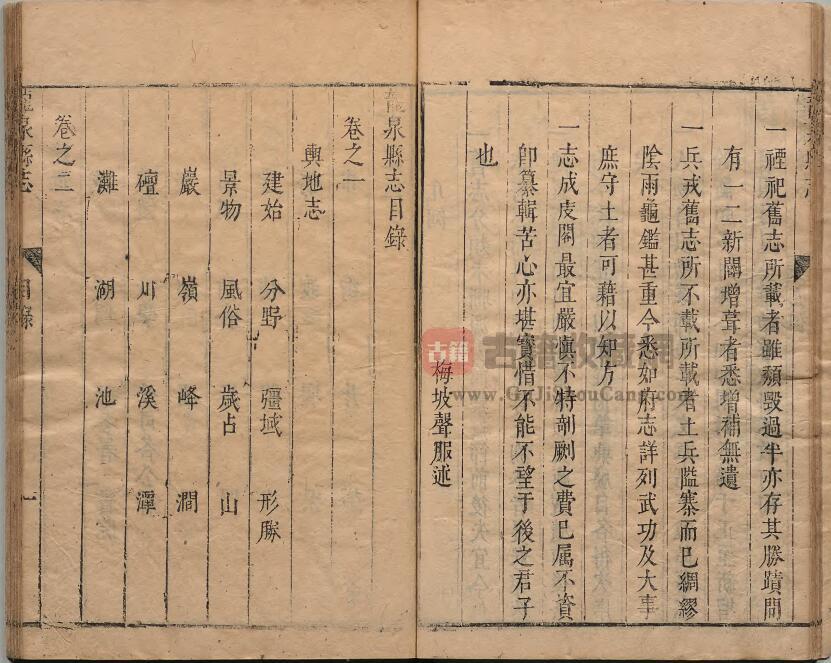 一禋祀舊志所載者雖頽毀過半亦存其勝蹟間
有一二新闢增葺者悉增補無遺
一兵戎舊志所不載所載者土兵隘寨而已綢繆
陰雨龜鑑甚重今悉如府志詳列武功及大事
庶守土者可藉以知方
一志成庋閣最宜嚴慎不特剞劂之費已属不資
即纂輯苦心亦堪寶惜不能不望于後之君子
也
梅坡聲服述
龍泉縣志目錄
卷之一
輿地志
建始 分野 疆域 形勝
景物 風俗 歲占 山
巖 嶺 峰 澗
礶 川 溪 潭
灘 湖 池
卷之二
龍泉縣志 目錄 一
古籍
www.GrJiShouCang.com